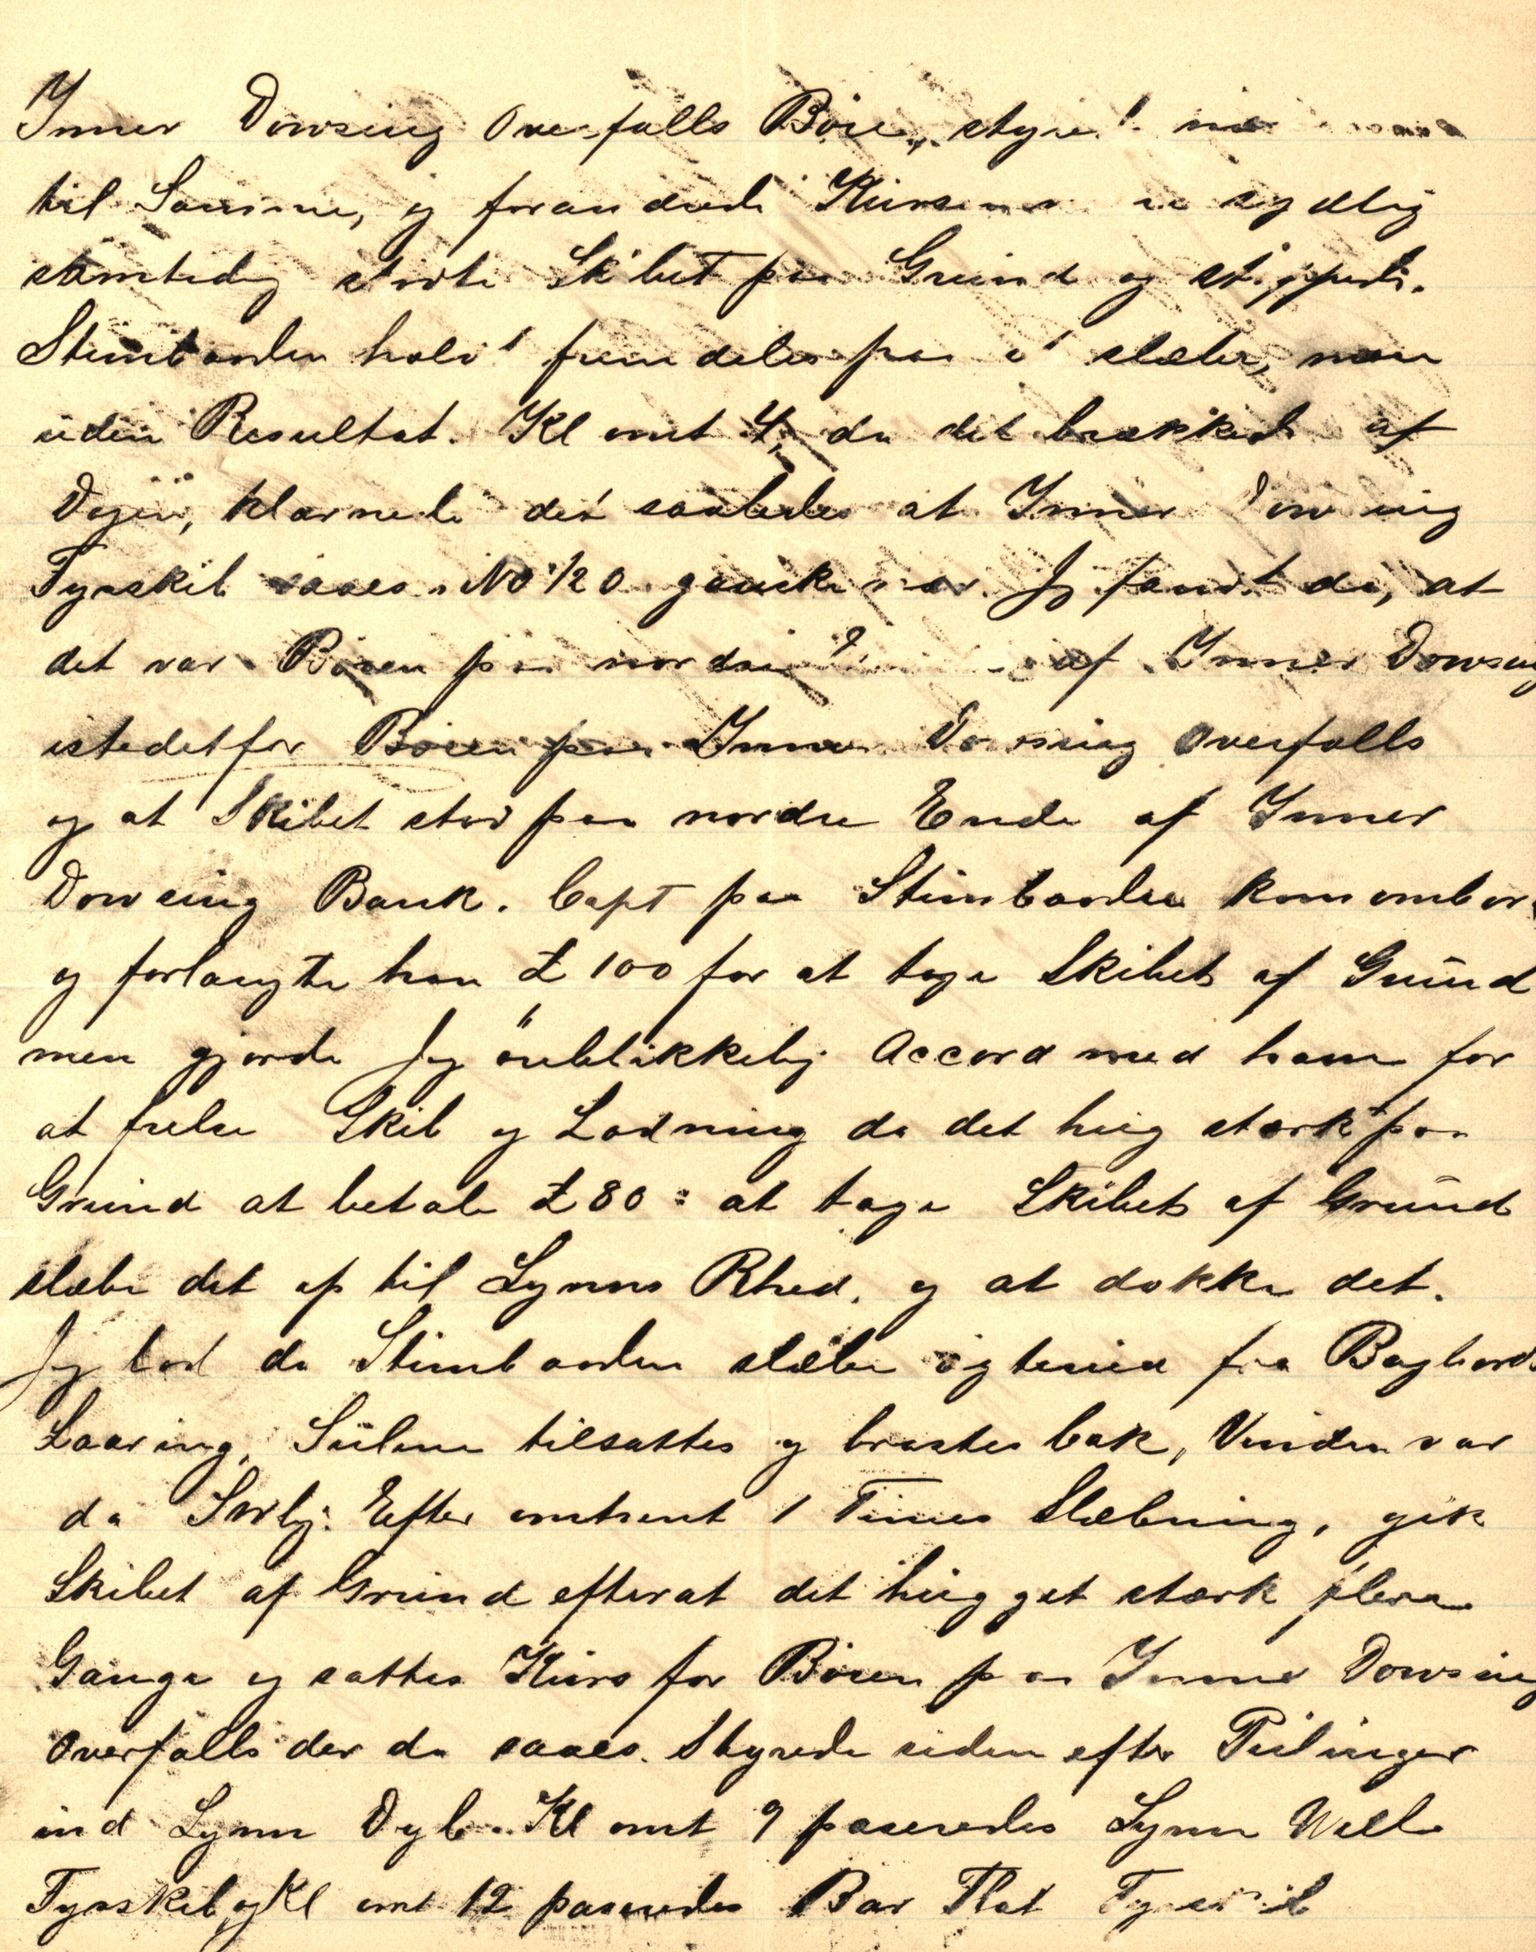 Inner Dowsing Overfalls Böie, styret nær
til Samme, og forandrede Kursen sydlig
samtidig stødte Skibet paa Grund og stoppede.
Stimbaaden halvt fremdeles paa at slæbe, men
uden Resultat. Kl omt 4, da det brækkede af
Dagen, klarnede det saaledes at Inner Dowsing
Fyrskib saaes i NO 1/2 O ganske nær. Jeg fandt da, at
det var Böien paa nordre af Inner Dowsing
istedetfor Böien paa Inner Dowsing Overfalls
og at Skibet stod paa nordre Ende af Inner
Dowsing Bank. Capt paa Stimbaaden kom ombord
og forlangte han £ 100 for at tage Skibet af Grund
men gjorde Jeg öieblikkelig Accord med ham for
at frelse Skib og Ladning da det hug stærkt paa
Grund at betale £ 80 : at tage Skibet af Grund
slæbe det op til Lynns Rhed, og at dokke det.
Jeg lod da Stimbaaden slæbe agtenud fra Bagbords
Laaring, Seilene tilsattes og brastes bak, Vinden var
da SWlig. Efter omtrent 1 Times Slæbning, gik
Skibet af Grund efterat det hugget stærk flere
Gange og sattes Kurs for Böien paa Inner Dowsing
Overfalls der da saaes. Styrede siden efter Peilinger
ind Lynn Dyb. Kl omt 9 paseredes Lynn Well
Fyrskib, og Kl omt 12 paseredes Bar Flat Fyrskib